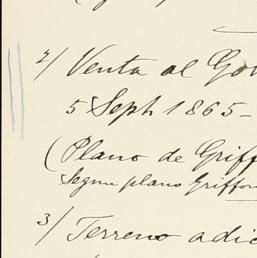 2/ Venta al Go
5 Seph 1865-
(Plano de Griff
Segun plano Griffon
3/ Terreno adic